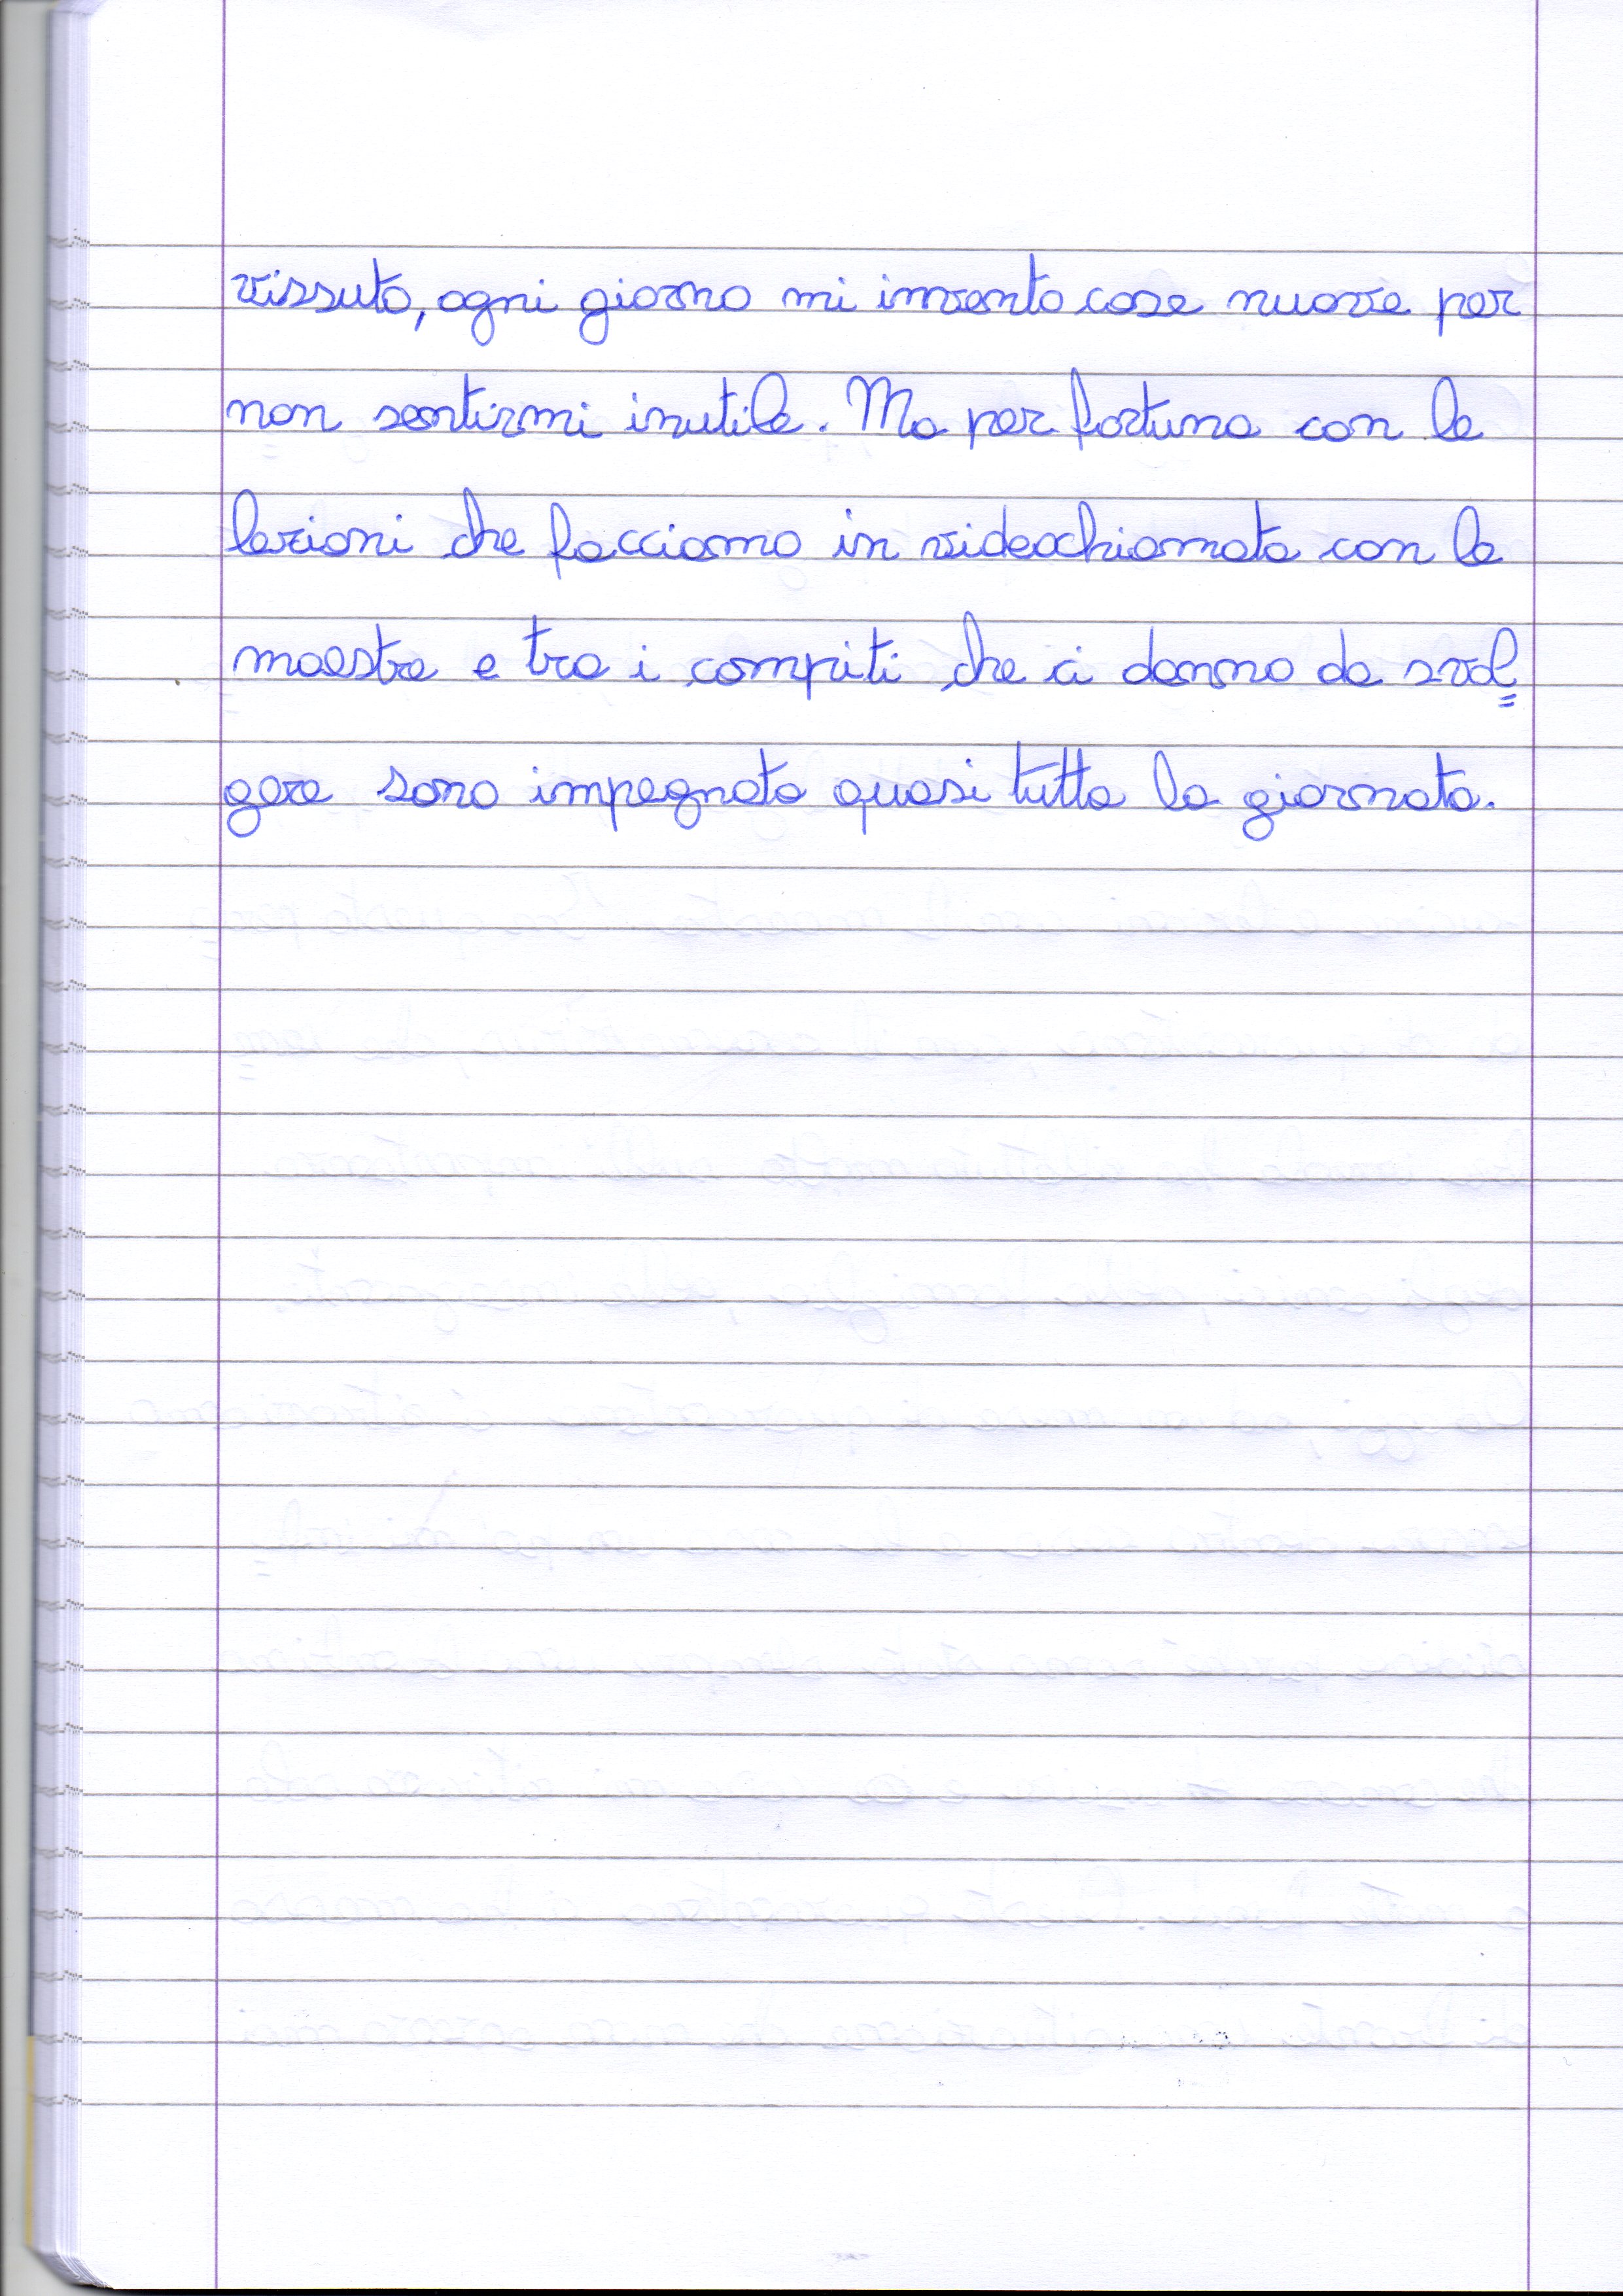 vissuto, ogni giorno mi invento cose nuove per
non sentirmi inutile. Ma per fortuna con le
lezioni che facciamo in videochiamata con le
maestre e tra i compiti che ci danno da svol=
gere sono impegnata quasi tutta la giornata.